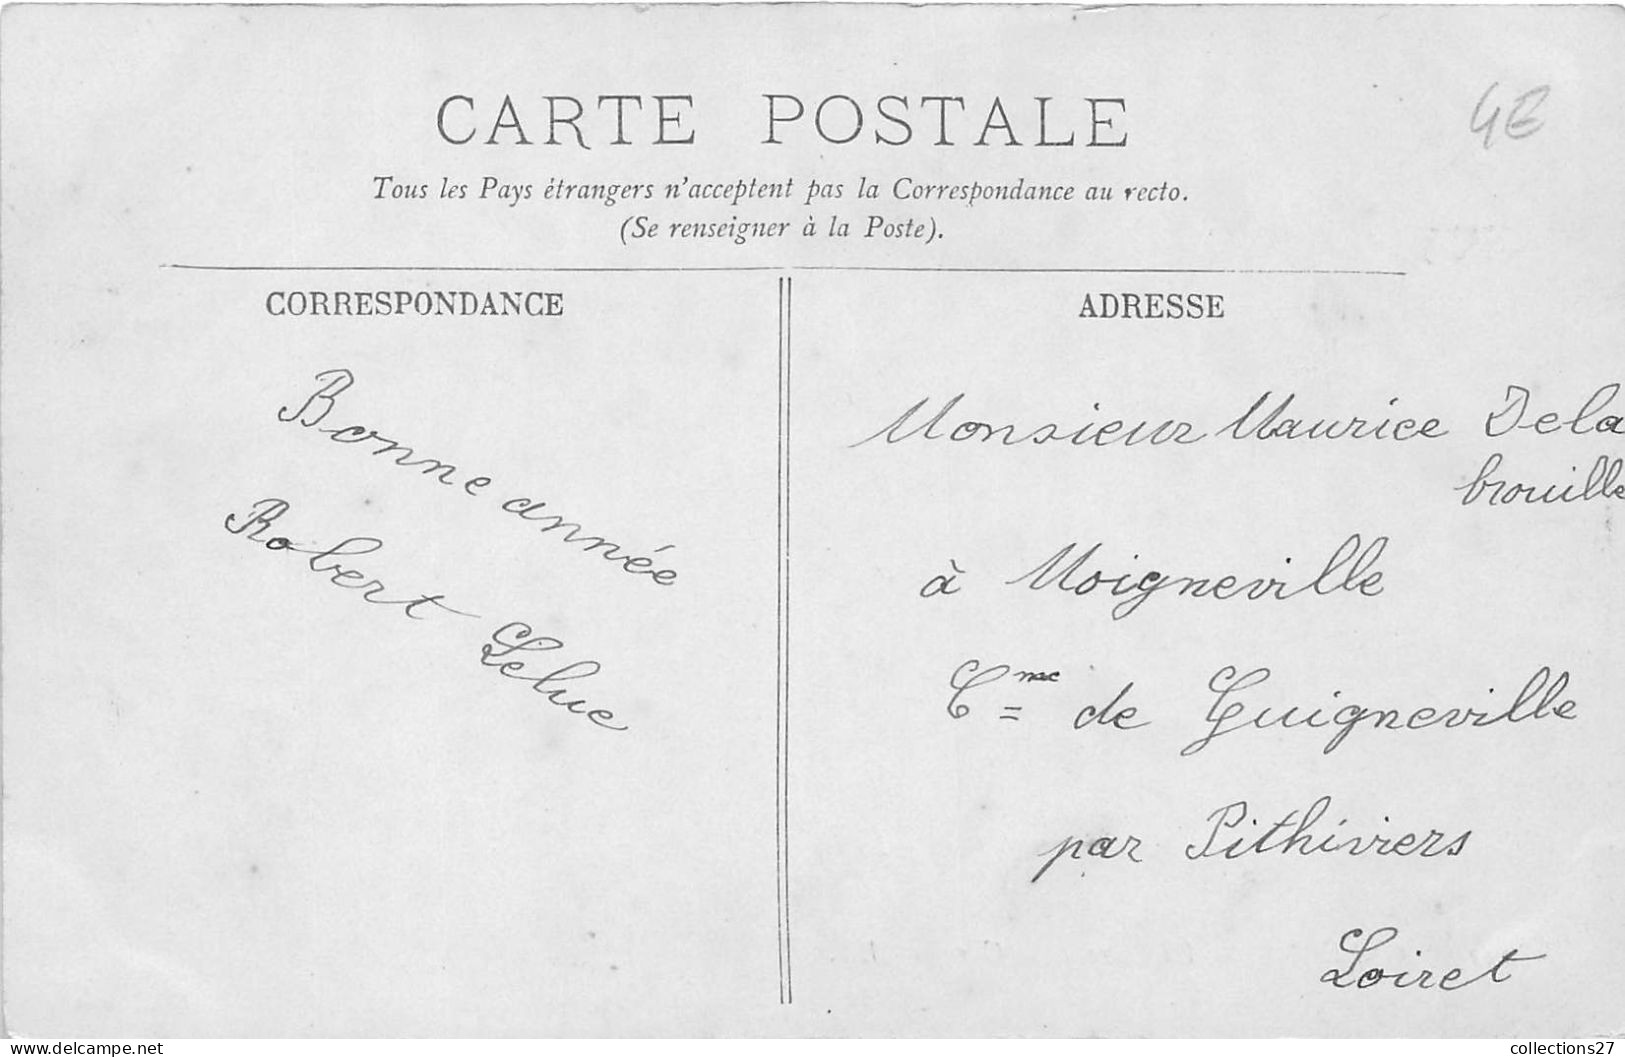 CARTE POSTALE
4E
Tous les Pays étrangers n'acceptent pas la Correspondance au recto.
(Se renseigner à la Poste).
CORRESPONDANCE
Bonne année
Robert Lelue
ADRESSE
Monsieur Maurice Dela
brouille
à Moigneville
Cme de Guigneville
par Pithiviers
Loiret
www.delcampe.net
collections27